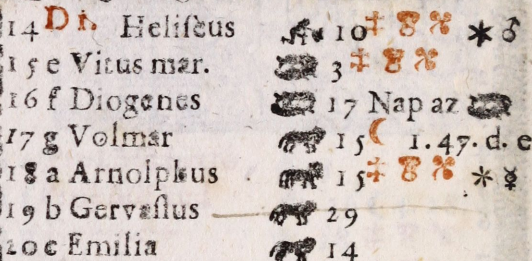 14 D Heliseus 10 ‡ * ♂
15 e Vitus mar. 3 ‡
16 f Diogenes 17 Nap az
17 g Volmar 15 ☾ 1.47. d. e
18 a Arnolphus 15 ‡ * ☿
19 b Gervasius 29
20 c Emilia 14